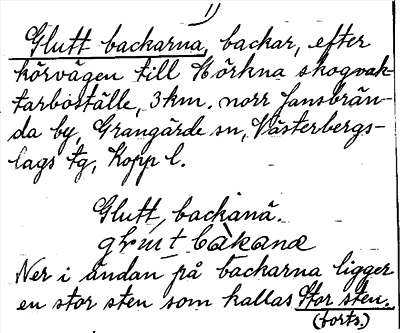 1)
Glutt backarna, backar, efter
körvägen till Mörkna skogvak-
tarböställe, 3 km. norr Jansbrän-
da by, Grangärde sn, Västerbergs-
lags tg, Kopp l.
Glutt, backanä.
Ner i ändan på backarna ligger
en stor sten som kallas Stor sten.
(forts.)